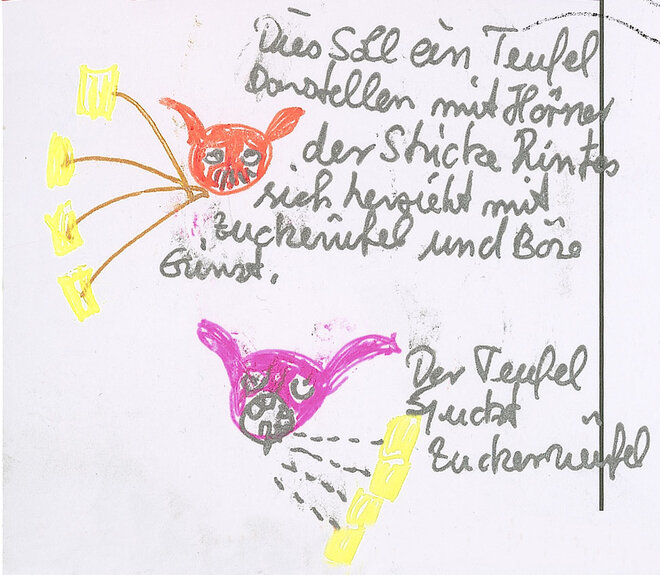 Dies Soll ein Teufel
Darstellen mit Hörner
der Stricke
sich herzieht mit
zuckerüfel und Böse
Grinst.
Der Teufel
Spuckt
Zuckerwüfel